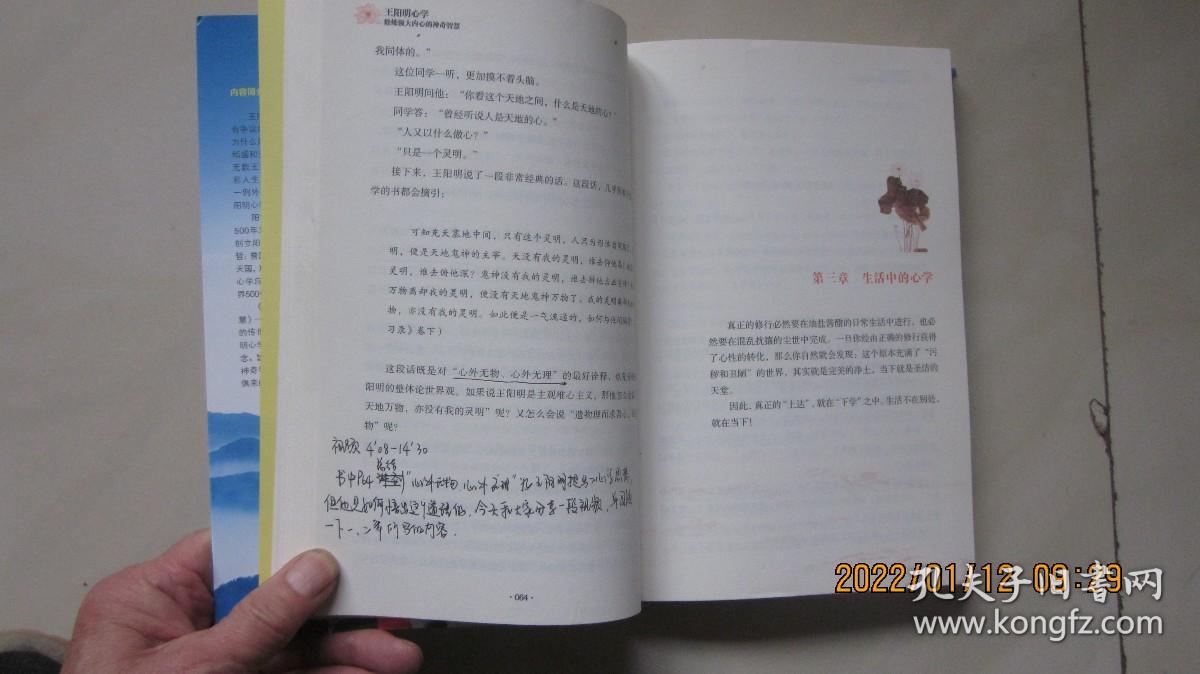 王阳明心学
修炼强大内心的神奇智慧
我同体的。”
这位同学一听，更加摸不着头脑。
王阳明问他：“你看这个天地之间，什么是天地的心？”
同学答：“曾经听说人是天地的心。”
“人又以什么做心？”
“只是一个灵明。”
接下来，王阳明说了一段非常经典的话。这段话，几乎
学的书都会摘引：
可知充天塞地中间，只有这个灵明，人只为形体自间隔
明，便是天地鬼神的主宰。天没有我的灵明，谁去仰他高？
灵明，谁去俯他深？鬼神没有我的灵明，谁去辨他吉凶
万物离却我的灵明，便没有天地鬼神万物了。我的灵明离却
物，亦没有我的灵明。如此便是一气流通的，如何与他间隔
习录》卷下）
这段话既是对“心外无物、心外无理”的最好诠释，也
阳明的整体论世界观。如果说王阳明是主观唯心主义，那他怎么会说
天地万物，亦没有我的灵明”呢？又怎么会说“遗物理而求吾心，
物”呢？
视频 4'08-14'30
总结
书中P64 “心外无物 心外无理”
今天和大家分享一段视频，
一下一、二章所写的内容.
·064·
内容简
王
有争议
为什么
稻盛和
无数王
彩人生
一例外
阳明心
阳
500年
创立阳
哲；曾国
天国，
心学应
界500
《
慧》一
的传
明心
念。
神奇
俱来
第三章 生活中的心学
真正的修行必然要在油盐酱醋的日常生活中进行，也必
然要在混乱扰攘的尘世中完成。一旦你经由正确的修行获得
了心性的转化，那么你自然就会发现：这个原本充满了“污
秽和丑陋”的世界，其实就是完美的净土，当下就是圣洁的
天堂。
因此，真正的“上达”，就在“下学”之中，生活不在别处，
就在当下！
2022/01/12 09:29
孔夫子旧书网
www.kongfz.com